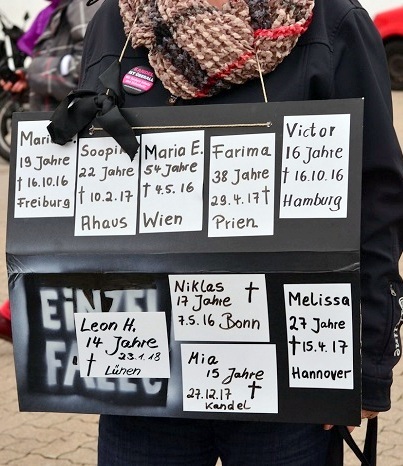 IST ÜBERALL
Maria
19 Jahre
† 16.10.16
Freiburg
Soopi
22 Jahre
† 10.2.17
Ahaus
Maria E.
54 Jahre
† 4.5.16
Wien
Farima
38 Jahre
29.4.17 †
Prien
Victor
16 Jahre
† 16.10.16
Hamburg
EiNZEL
FÄLLE
Leon H.
14 Jahre
† 23.1.18
Lünen
Niklas
17 Jahre †
7.5.16 Bonn
Mia
15 Jahre
27.12.17 †
Kandel
Melissa
27 Jahre
† 15.4.17
Hannover